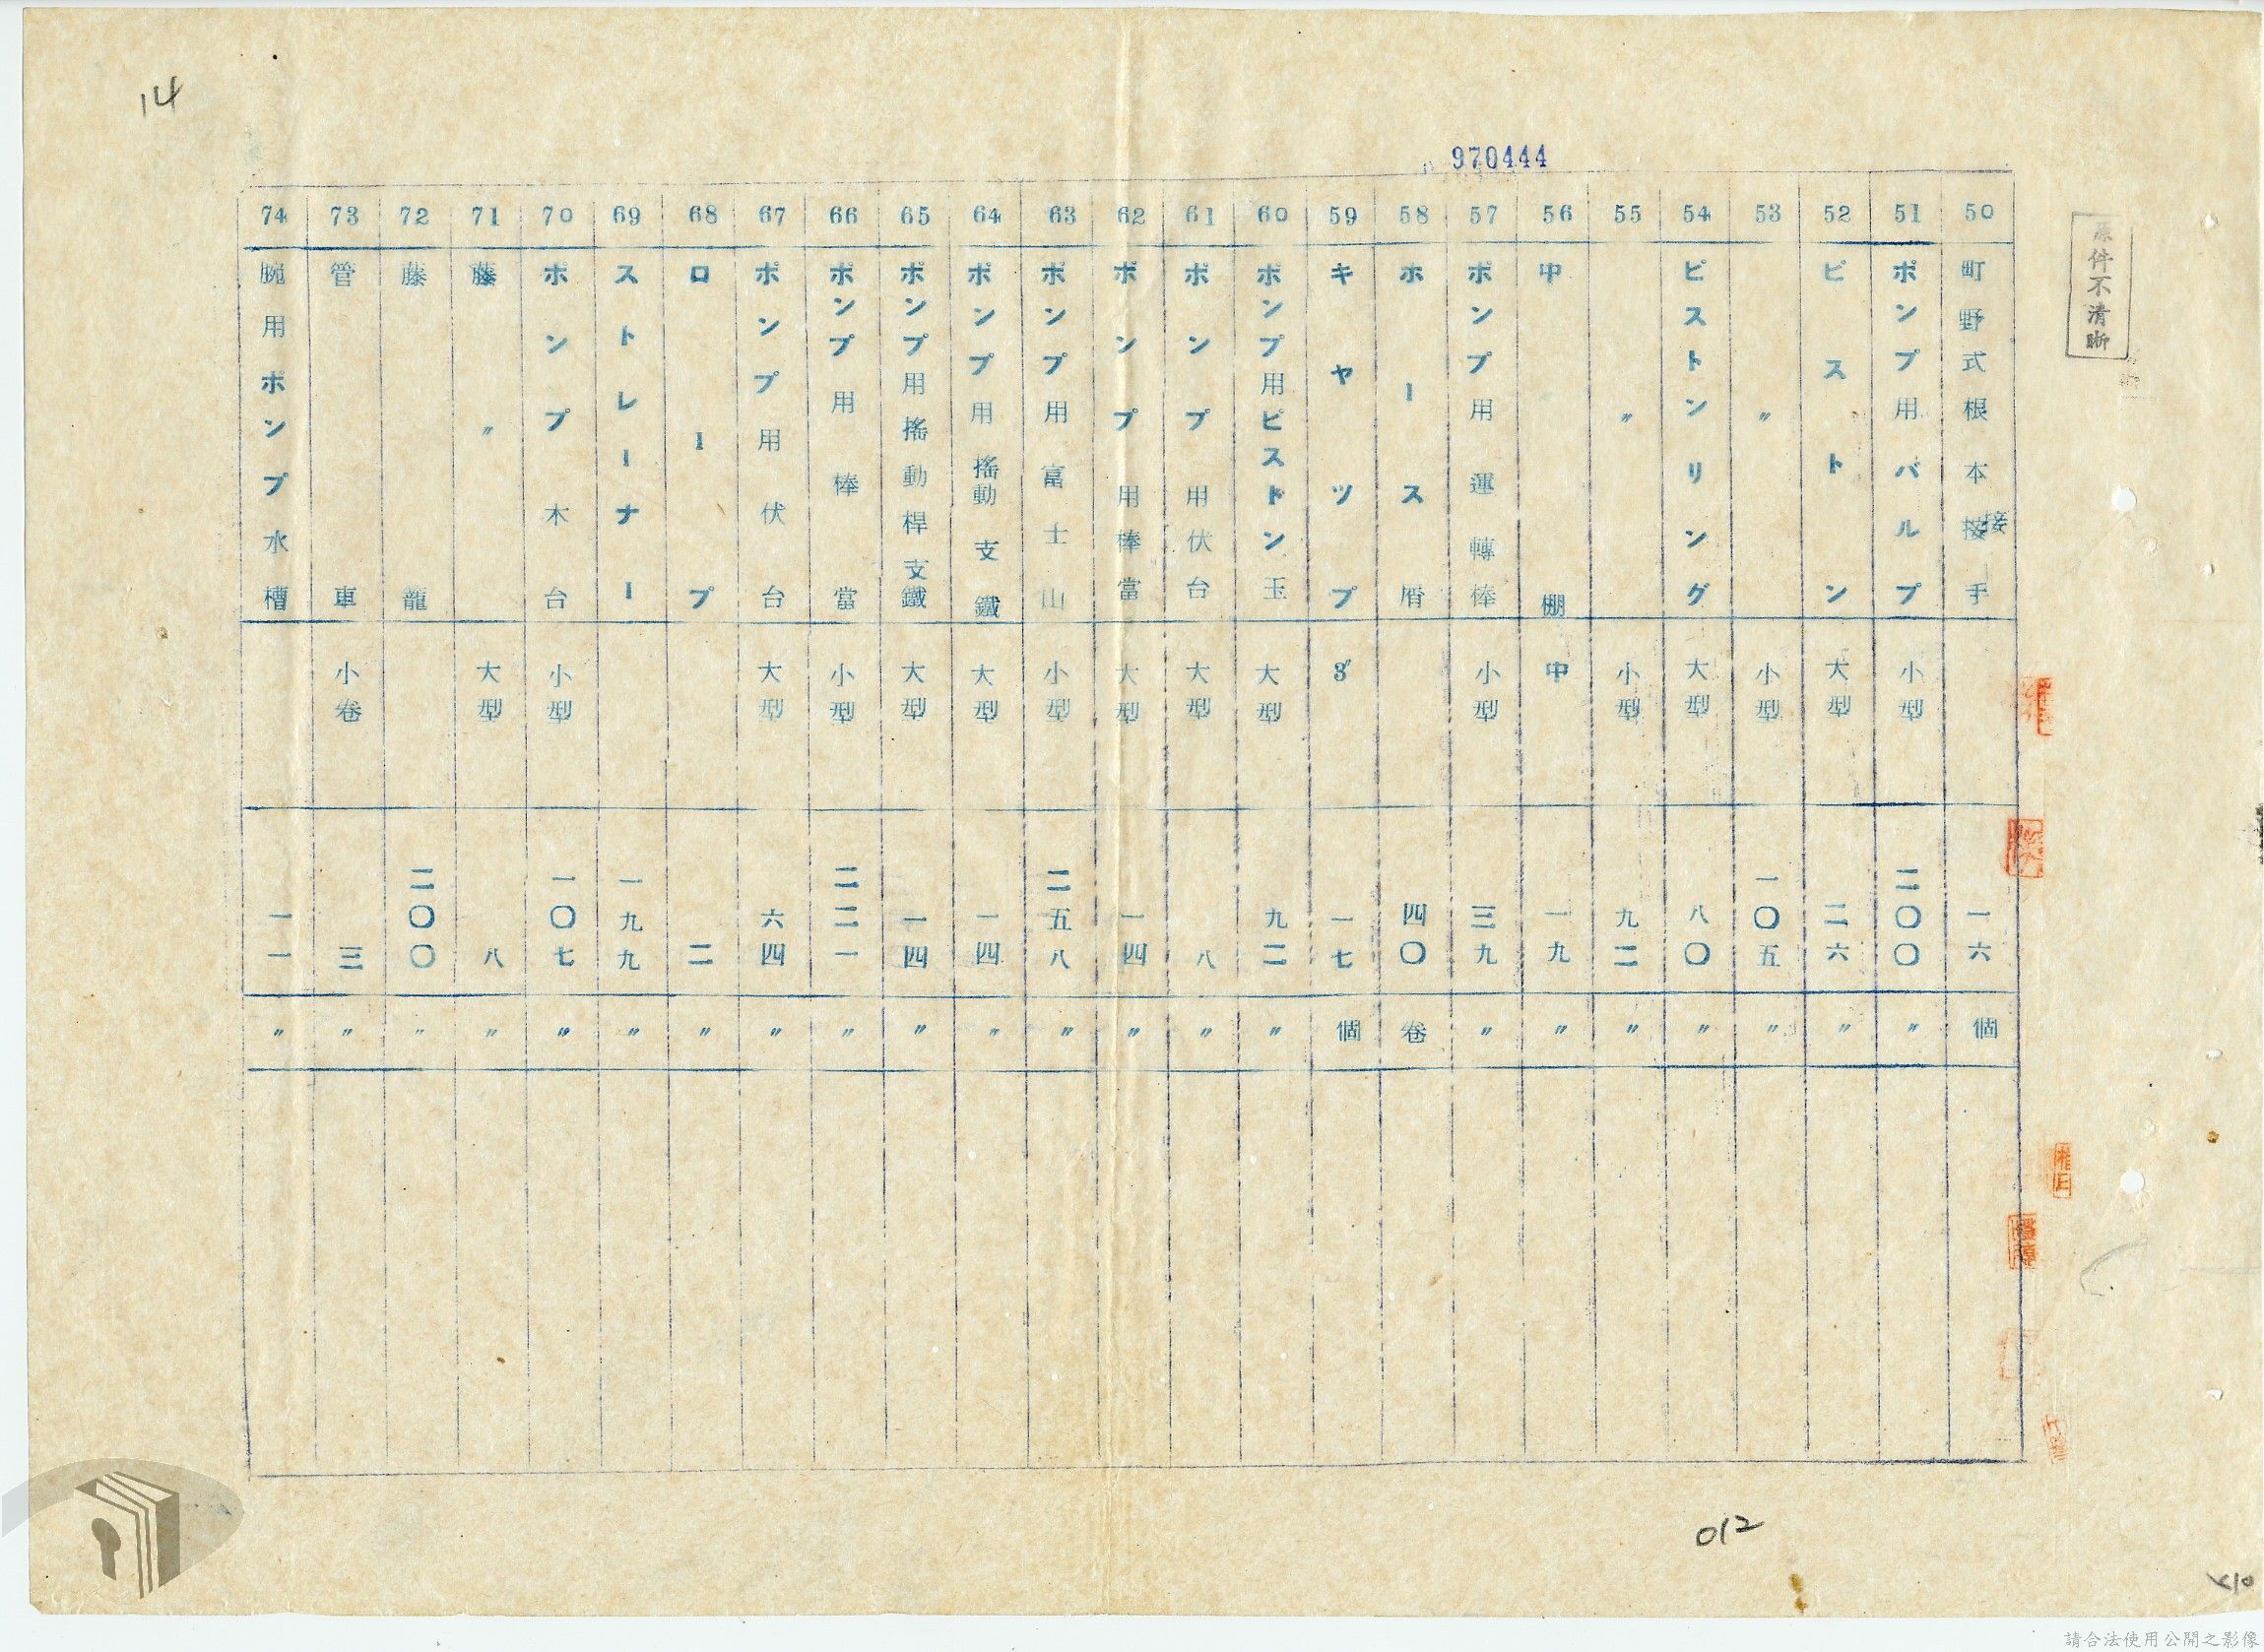 14
970444
原件不清晰
50 町野式根本接接手 一六 個
51 ポンプ用バルブ 小型 二〇〇 〃
52 ピストン 大型 二六 〃
53 〃 小型 一〇五 〃
54 ピストンリング 大型 八〇 〃
55 〃 小型 九二 〃
56 中棚 中 一九 〃
57 ポンプ用運轉棒 小型 三九 〃
58 ホース屑 四〇 卷
59 キヤツプ 3" 一七 個
60 ポンプ用ピストン玉 大型 九二 〃
61 ポンプ用伏台 大型 八 〃
62 ポンプ用棒當 大型 一四 〃
63 ポンプ用富士山 小型 二五八 〃
64 ポンプ用搖動支鐵 大型 一四 〃
65 ポンプ用搖動桿支鐵 大型 一四 〃
66 ポンプ用棒當 小型 二二一 〃
67 ポンプ用伏台 大型 六四 〃
68 ロープ 二 〃
69 ストレーナー 一九九 〃
70 ポンプ木台 小型 一〇七 〃
71 藤〃 大型 八 〃
72 藤籠 二〇〇 〃
73 管車 小卷 三 〃
74 腕用ポンプ水槽 一一 〃
012
請合法使用公開之影像